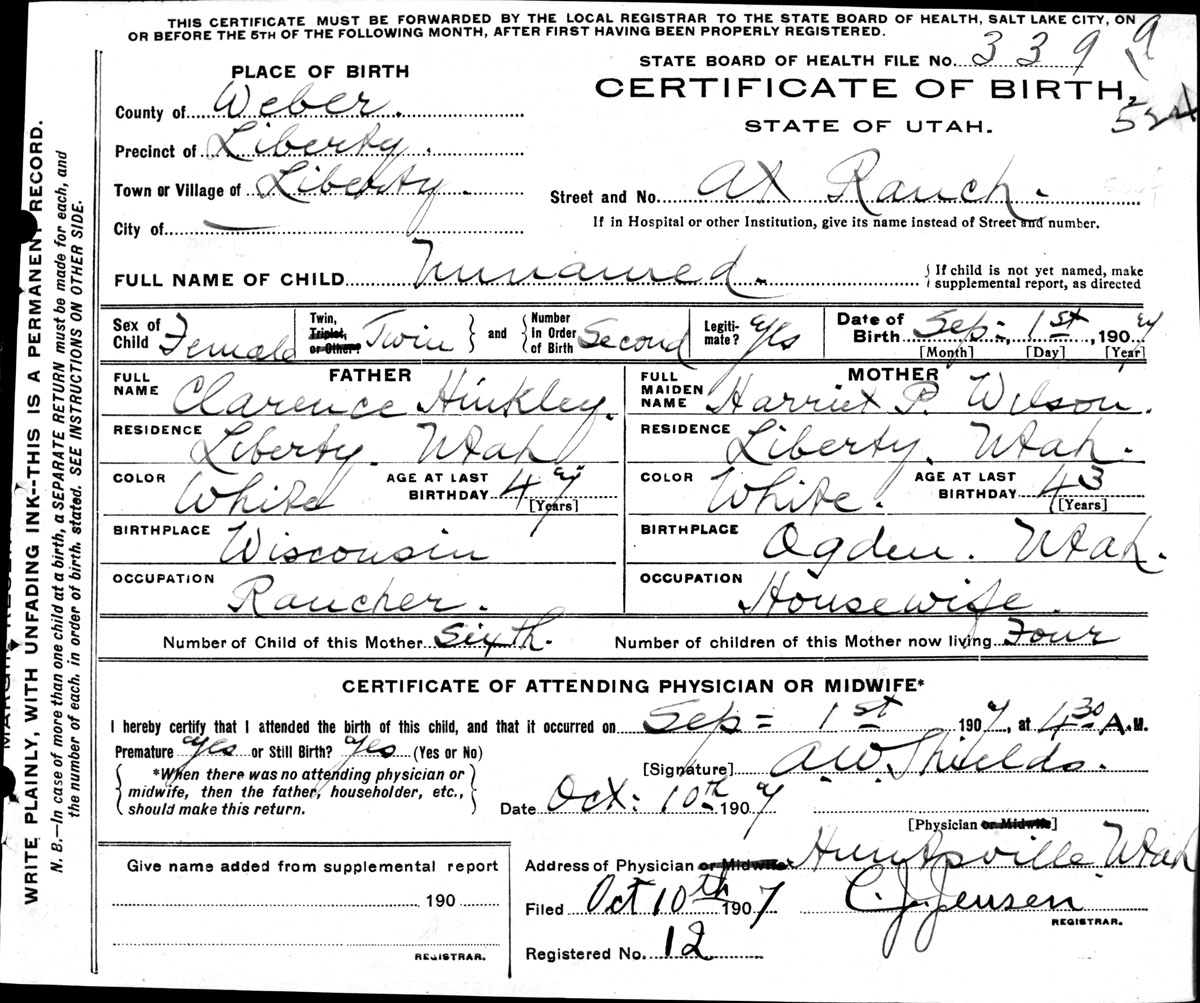 THIS CERTIFICATE MUST BE FORWARDED BY THE LOCAL REGISTRAR TO THE STATE BOARD OF HEALTH, SALT LAKE CITY, ON
OR BEFORE THE 5TH OF THE FOLLOWING MONTH, AFTER FIRST HAVING BEEN PROPERLY REGISTERED.
STATE BOARD OF HEALTH FILE No. 339
PLACE OF BIRTH
CERTIFICATE OF BIRTH,
STATE OF UTAH.
524
County of Weber.
Precinct of Liberty.
Town or Village of Liberty.
City of —
Street and No. At Ranch.
If in Hospital or other Institution, give its name instead of Street and number.
FULL NAME OF CHILD Unnamed.
{ If child is not yet named, make
supplemental report, as directed
Sex of Child Female
Twin, Triplet, or Other? Twin } and { Number in Order of Birth Second
Legitimate? Yes
Date of Birth Sep= 1st, 1907
[Month] [Day] [Year]
FATHER
FULL NAME Clarence Hinkley.
RESIDENCE Liberty. Utah
COLOR White AGE AT LAST BIRTHDAY 47
[Years]
BIRTHPLACE Wisconsin
OCCUPATION Rancher.
MOTHER
FULL MAIDEN NAME Harriet P. Wilson.
RESIDENCE Liberty. Utah.
COLOR White. AGE AT LAST BIRTHDAY 43
[Years]
BIRTHPLACE Ogden. Utah.
OCCUPATION Housewife.
Number of Child of this Mother Sixth. Number of children of this Mother now living Four
CERTIFICATE OF ATTENDING PHYSICIAN OR MIDWIFE*
I hereby certify that I attended the birth of this child, and that it occurred on Sep= 1st 1907, at 4 30 A.M.
Premature Yes or Still Birth? Yes (Yes or No)
{ *When there was no attending physician or
midwife, then the father, householder, etc.,
should make this return. }
[Signature] A.W. Shields.
Date Oct: 10th 1907
[Physician or Midwife]
Address of Physician or Midwife Huntsville Utah
Filed Oct 10th 1907 C. J. Jensen
REGISTRAR.
Registered No. 12
Give name added from supplemental report
190
REGISTRAR.
WRITE PLAINLY, WITH UNFADING INK--THIS IS A PERMANENT RECORD.
N. B.—In case of more than one child at a birth, a SEPARATE RETURN must be made for each, and
the number of each. in order of birth. stated. SEE INSTRUCTIONS ON OTHER SIDE.